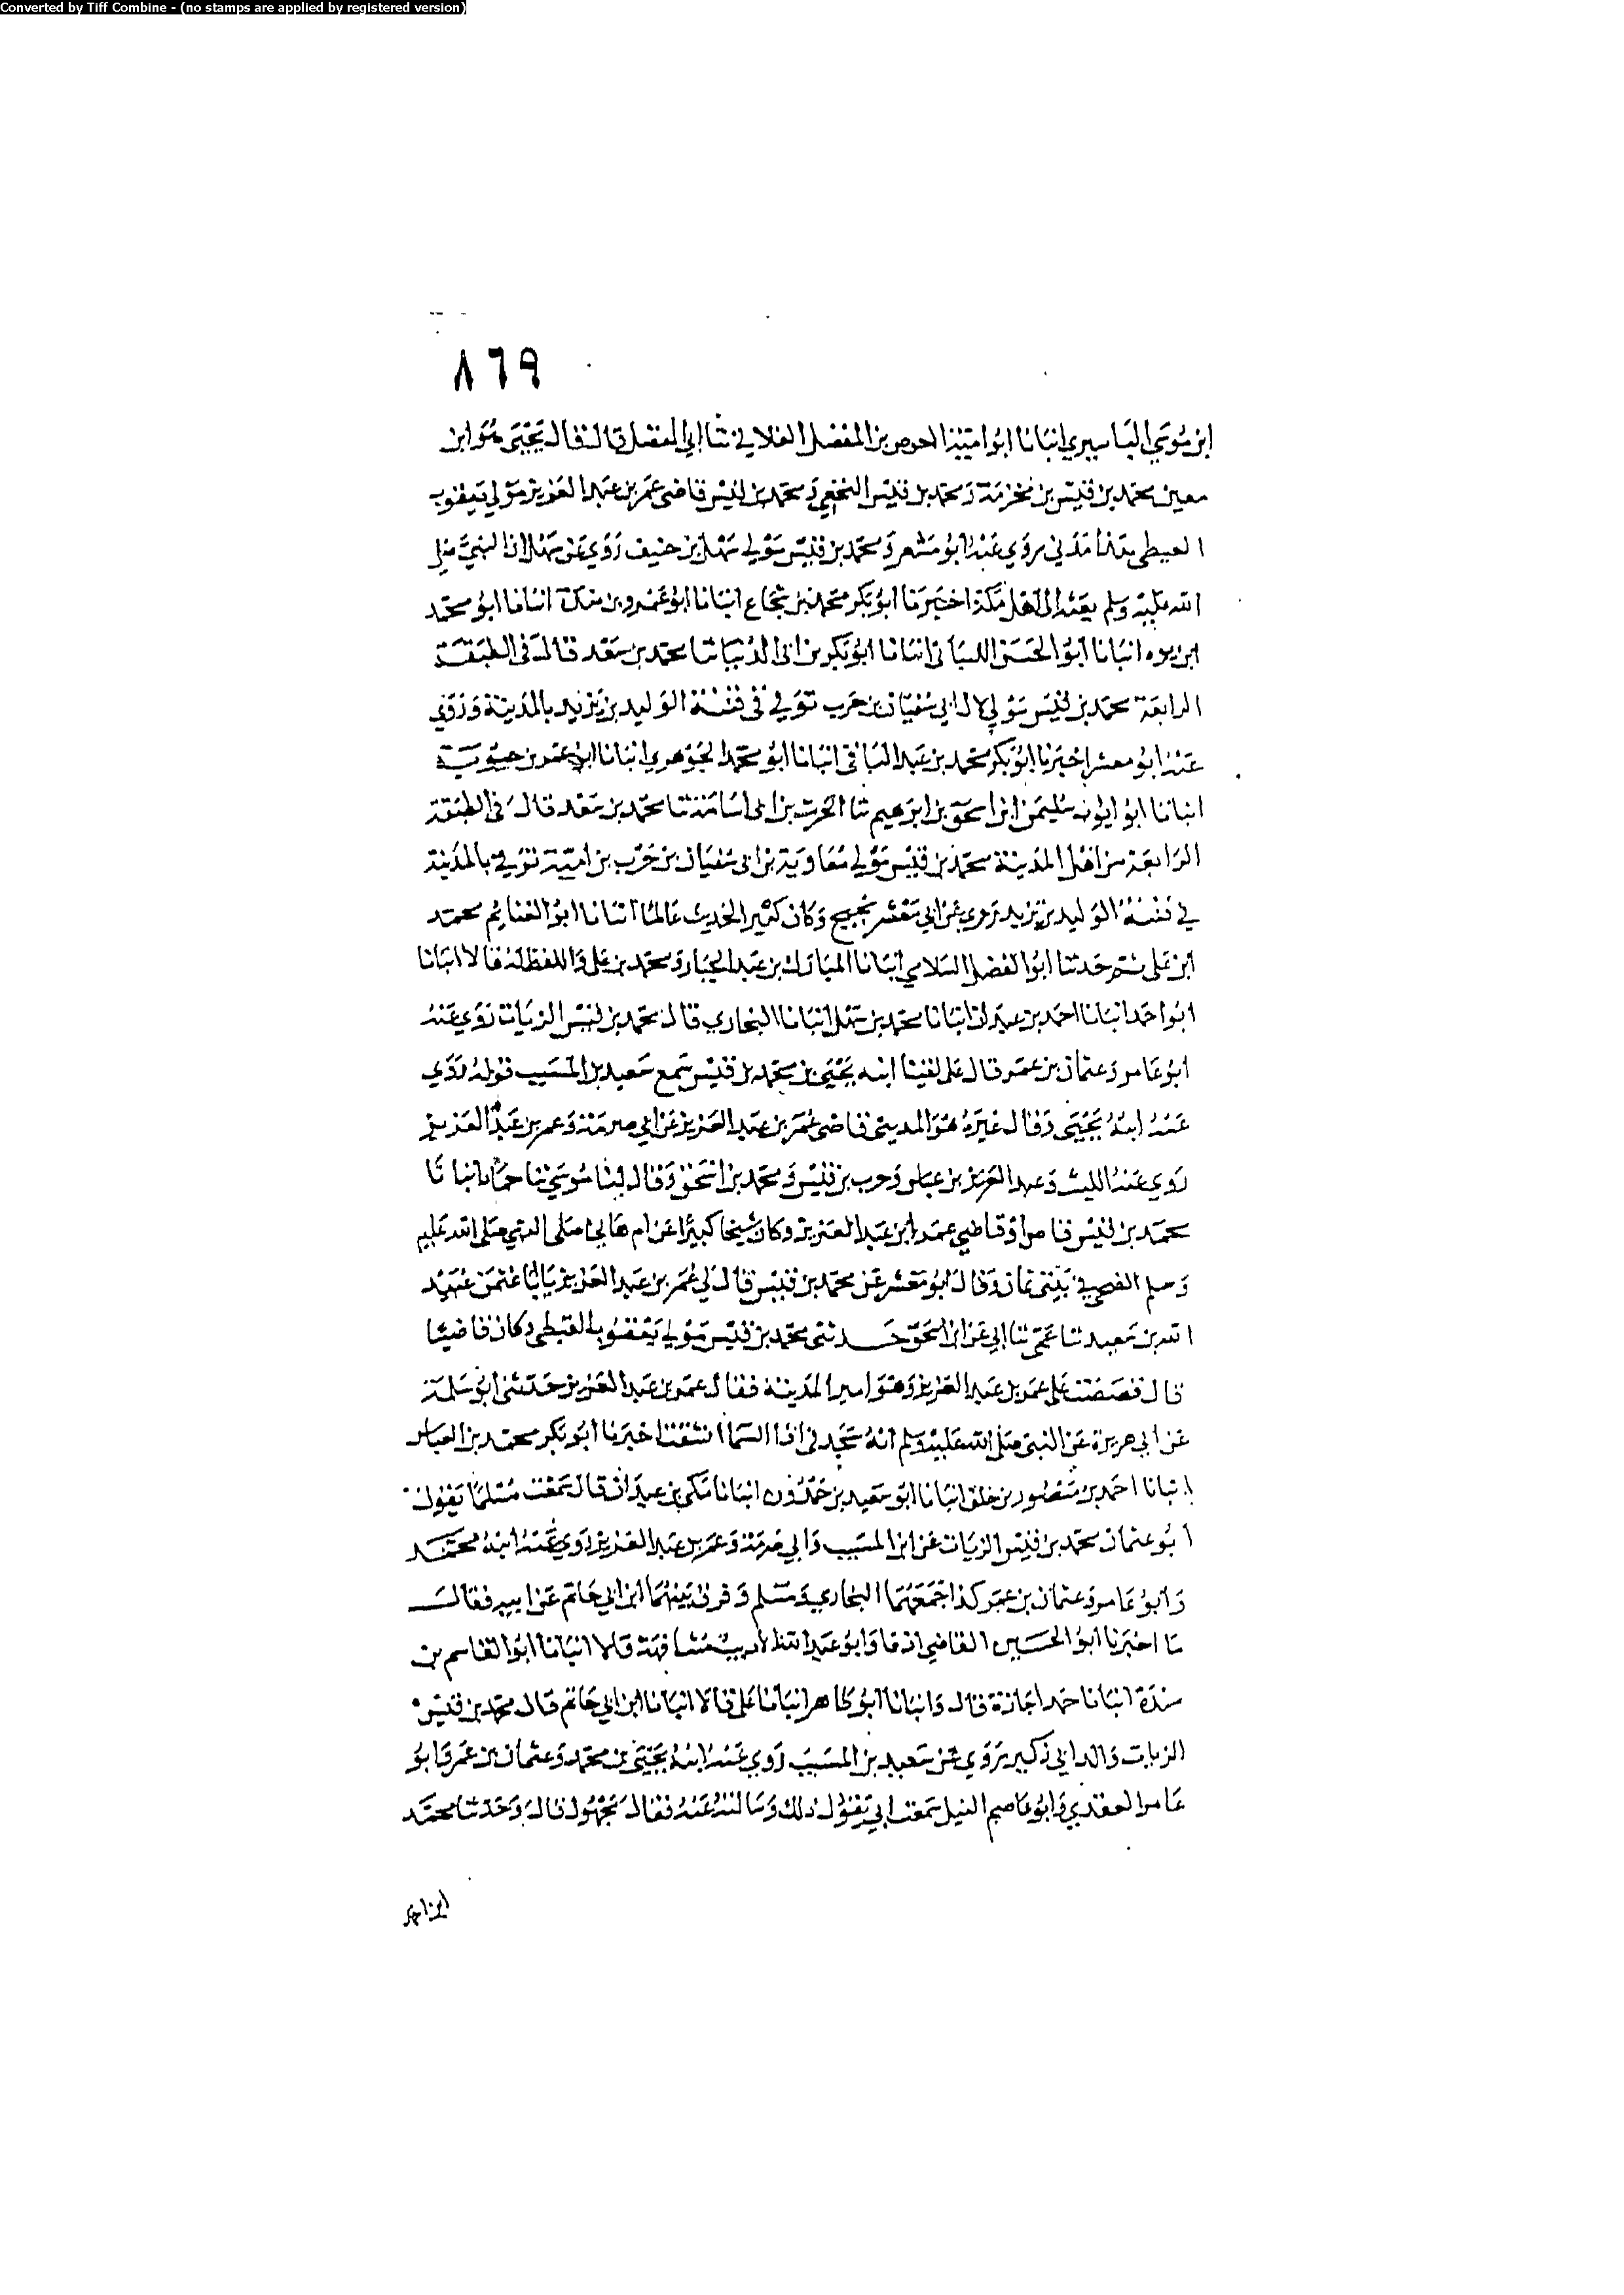 Converted by Tiff Combine - (no stamps are applied by registered version)
٨٦٩
ابن موسي البابسيري انبانا ابوا امية الاحوص بن المفضل الغلابي نا ابي المفضل قال قال يحيى هو ابن
معين محمد بن قيس بن مخرمة ومحمد بن قيس النخعي ومحمد بن قيس قاضى عمر بن عبد العزيز مولي يعقوب
العبطى هذا مدني يروي عنه ابو مشعر ومحمد بن قيس مولي سهل بن حنيف روي عن سهل ان النبي صلى
الله عليه وسلم بعثه الى اهل مكة اخبرنا ابو بكر محمد بن شجاع انبانا ابو عمرو بن مندة انبانا ابو محمد
ابن يوه انبانا ابو الحسن اللبنانى انبانا ابو بكر بن ابى الدنيا ثنا محمد بن سعد قال فى الطبقة
الرابعة محمد بن قيس مولي لال ابي سفيان بن حرب توفي فى فتنة الوليد بن يزيد بالمدينة وروي
عنه ابو معشر اخبرنا ابو بكر محمد بن عبد الباقى انبانا ابو محمد الجوهري انبانا ابو عمر بن حيوية
انبانا ابو ايوب سليمن ابن اسحق بن ابرهيم ثنا الحرث بن ابى اسامة ثنا محمد بن سعد قال فى الطبقة
الرابعة من اهل المدينة محمد بن قيس مولي معاوية بن ابى سفيان بن حرب بن امية توفي بالمدينة
في فتنة الوليد بن يزيد روي عن ابي معشر نجيح وكان كثير الحديث عالما انبانا ابو الغنايم محمد
ابن على ثم حدثنا ابو الفضل السلامي انبانا المبارك بن عبد الجبار ومحمد بن على واللفظ له قالا انبانا
ابوا احمد انبانا احمد بن عبدان انبانا محمد بن سهل انبانا البخاري قال محمد بن قيس الزيات روي عنه
ابو عامر وعثمان بن عمر قال على لقينا ابنه يحيى بن محمد بن قيس سمع سعيد بن المسيب قوله روي
عنه ابنه يحيى وقال غيره هو المدينى قاضى عمر بن عبد العزيز عن ابي صرمة وعمر بن عبد العزيز
روي عنه الليث وعبد العزيز بن عياش وحرب بن قيس ومحمد بن اسحق وقال لنا موسي ثنا حماد انبانا
محمد بن قيس قاص او قاضي عمر ابن عبد العزيز وكان شيخا كبيرا عن ام هاني صلى النبي صلى الله عليه
وسلم الضحى في بيتى ثمان وقال ابو معشر عن محمد بن قيس قال لي عمر بن عبد العزيز عن عبيد
الله بن سعيد ثنا عمى ثنا ابي عن ابن اسحق حدثنى محمد بن قيس مولي يعقوب القبطي وكان قاضيا
قال قصصت على عمر بن عبد العزيز وهو امير المدينة فقال عمر بن عبد العزيز حدثنى ابو سلمة
عن ابي هريرة عن النبى صلى الله عليه وسلم انه سجد في اذا السما انشقت اخبرنا ابو بكر محمد بن العباس
انبانا احمد بن منصور بن خلف انبانا ابو سعيد بن حمدون انبانا مكي بن عبدان قال سمعت مسلما يقول
ابو عثمان محمد بن قيس الزيات عن ابن المسيب وابي صرمة وعمر بن عبد العزيز روي عنه ابنه محمد
وابو عامر وعثمان بن عمر كذا جمعهما البخاري ومسلم وفرق بينهما ابن ابي حاتم عن ابيه فقال
ما اخبرنا ابو الحسين القاضي اذنا وابو عبد الله الاديب مشافهة قالا انبانا ابو القاسم بن
مندة انبانا حمد اجازة قال وانبانا ابو طاهر انبانا على قالا انبانا ابن ابي حاتم قال محمد بن قيس
الزيات والد ابي زكير يروي عن سعيد بن المسيب روي عنه ابنه يحيى بن محمد وعثمان بن عمر وابو
عامر العقدي وابو عاصم النبيل سمعت ابي يقول ذلك وسالته عنه فقال مجهول قال وحدثنا محمد
ابن احمد